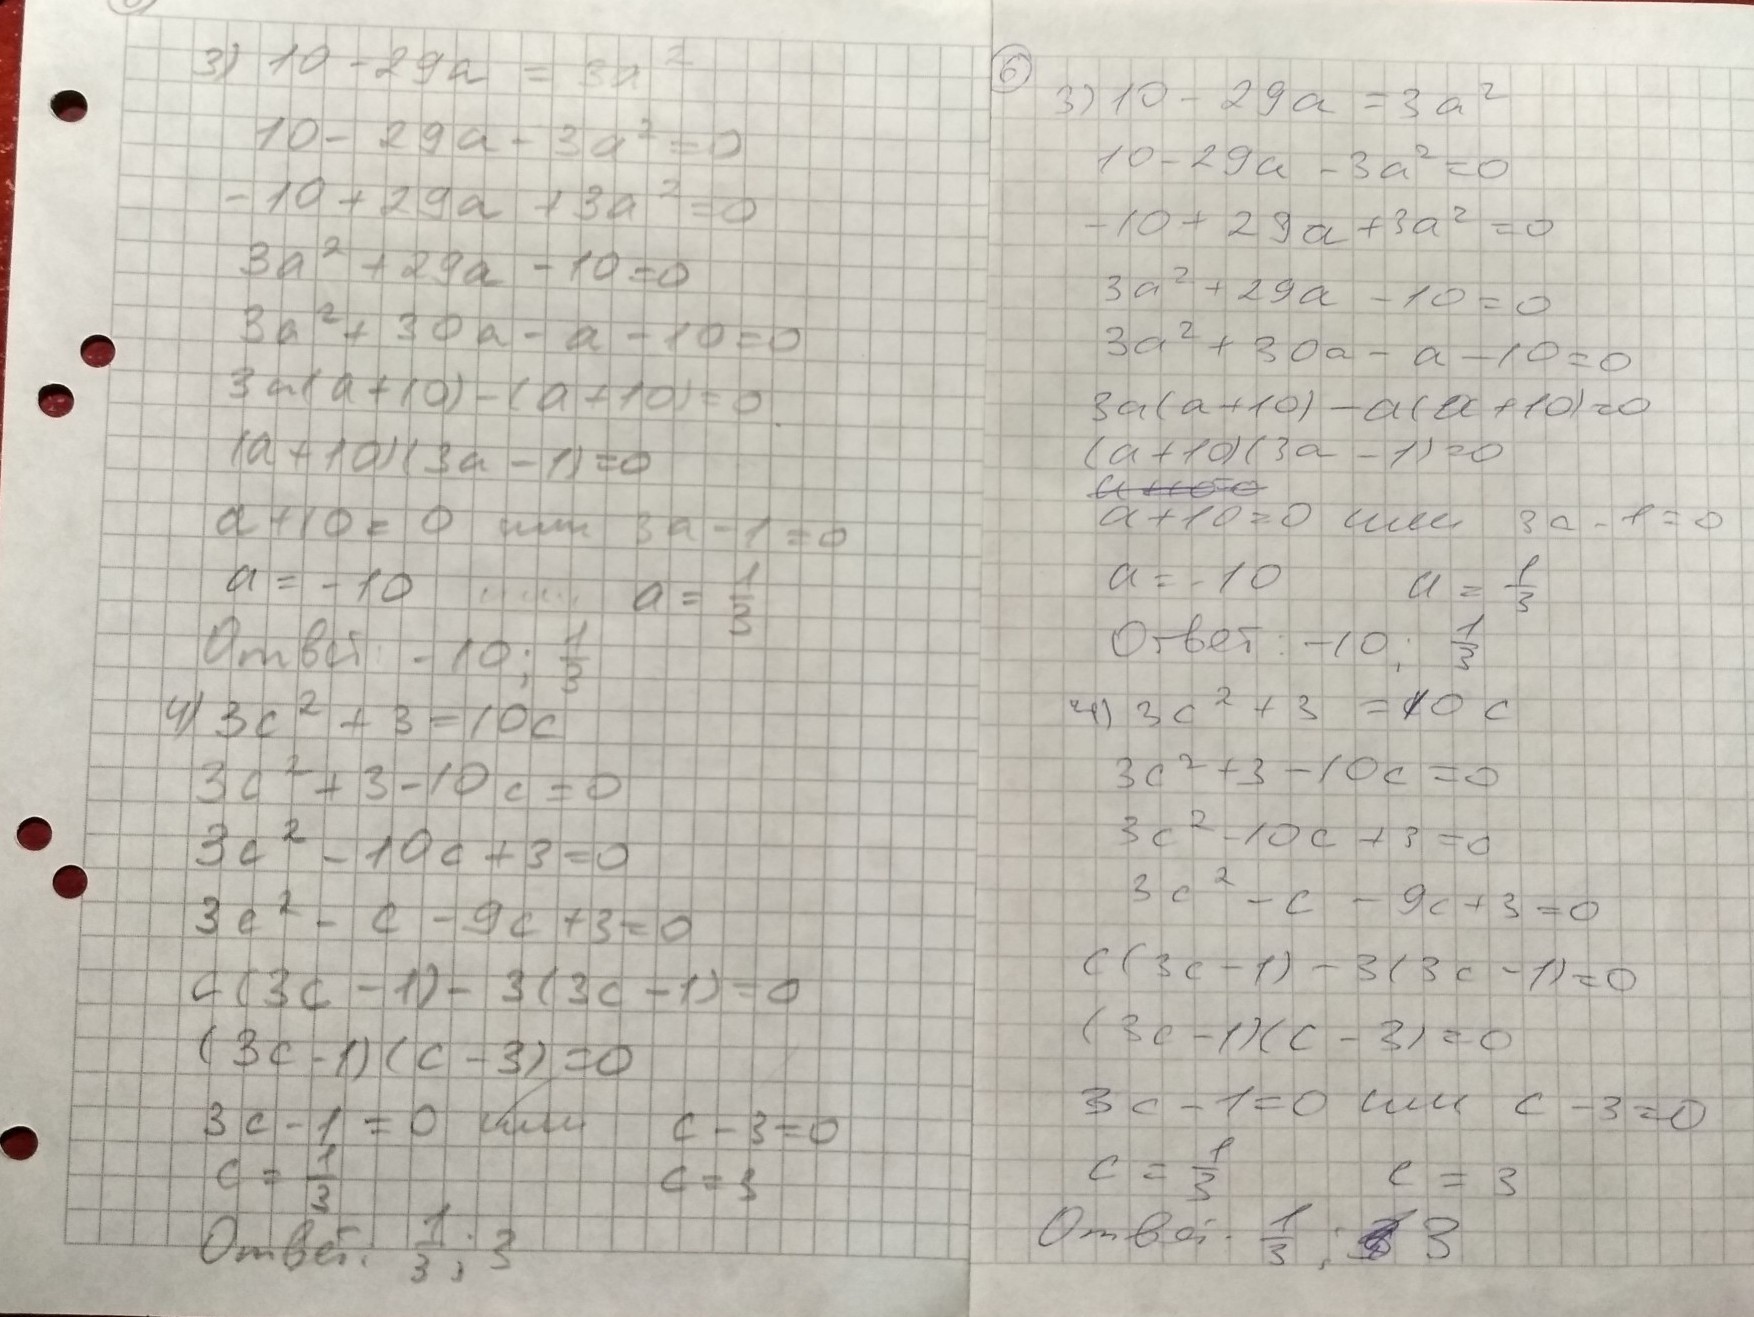 3) 10 - 29a = 3a²
10 - 29a - 3a² = 0
-10 + 29a + 3a² = 0
3a² + 29a - 10 = 0
3a² + 30a - a - 10 = 0
3a(a+10) - (a+10) = 0
(a+10)(3a-1) = 0
a+10 = 0 или 3a-1 = 0
a = -10 a = 1/3
Ответ: -10; 1/3
4) 3c² + 3 = 10c
3c² + 3 - 10c = 0
3c² - 10c + 3 = 0
3c² - c - 9c + 3 = 0
c(3c-1) - 3(3c-1) = 0
(3c-1)(c-3) = 0
3c-1 = 0 или c-3 = 0
c = 1/3 c = 3
Ответ: 1/3; 3
6
3) 10 - 29a = 3a²
10 - 29a - 3a² = 0
-10 + 29a + 3a² = 0
3a² + 29a - 10 = 0
3a² + 30a - a - 10 = 0
3a(a+10) - a(a+10) = 0
(a+10)(3a-1) = 0
a+10 = 0 или 3a-1 = 0
a = -10 a = 1/3
Ответ: -10; 1/3
4) 3c² + 3 = 10c
3c² + 3 - 10c = 0
3c² - 10c + 3 = 0
3c² - c - 9c + 3 = 0
c(3c-1) - 3(3c-1) = 0
(3c-1)(c-3) = 0
3c-1 = 0 или c-3 = 0
c = 1/3 c = 3
Ответ: 1/3; 3